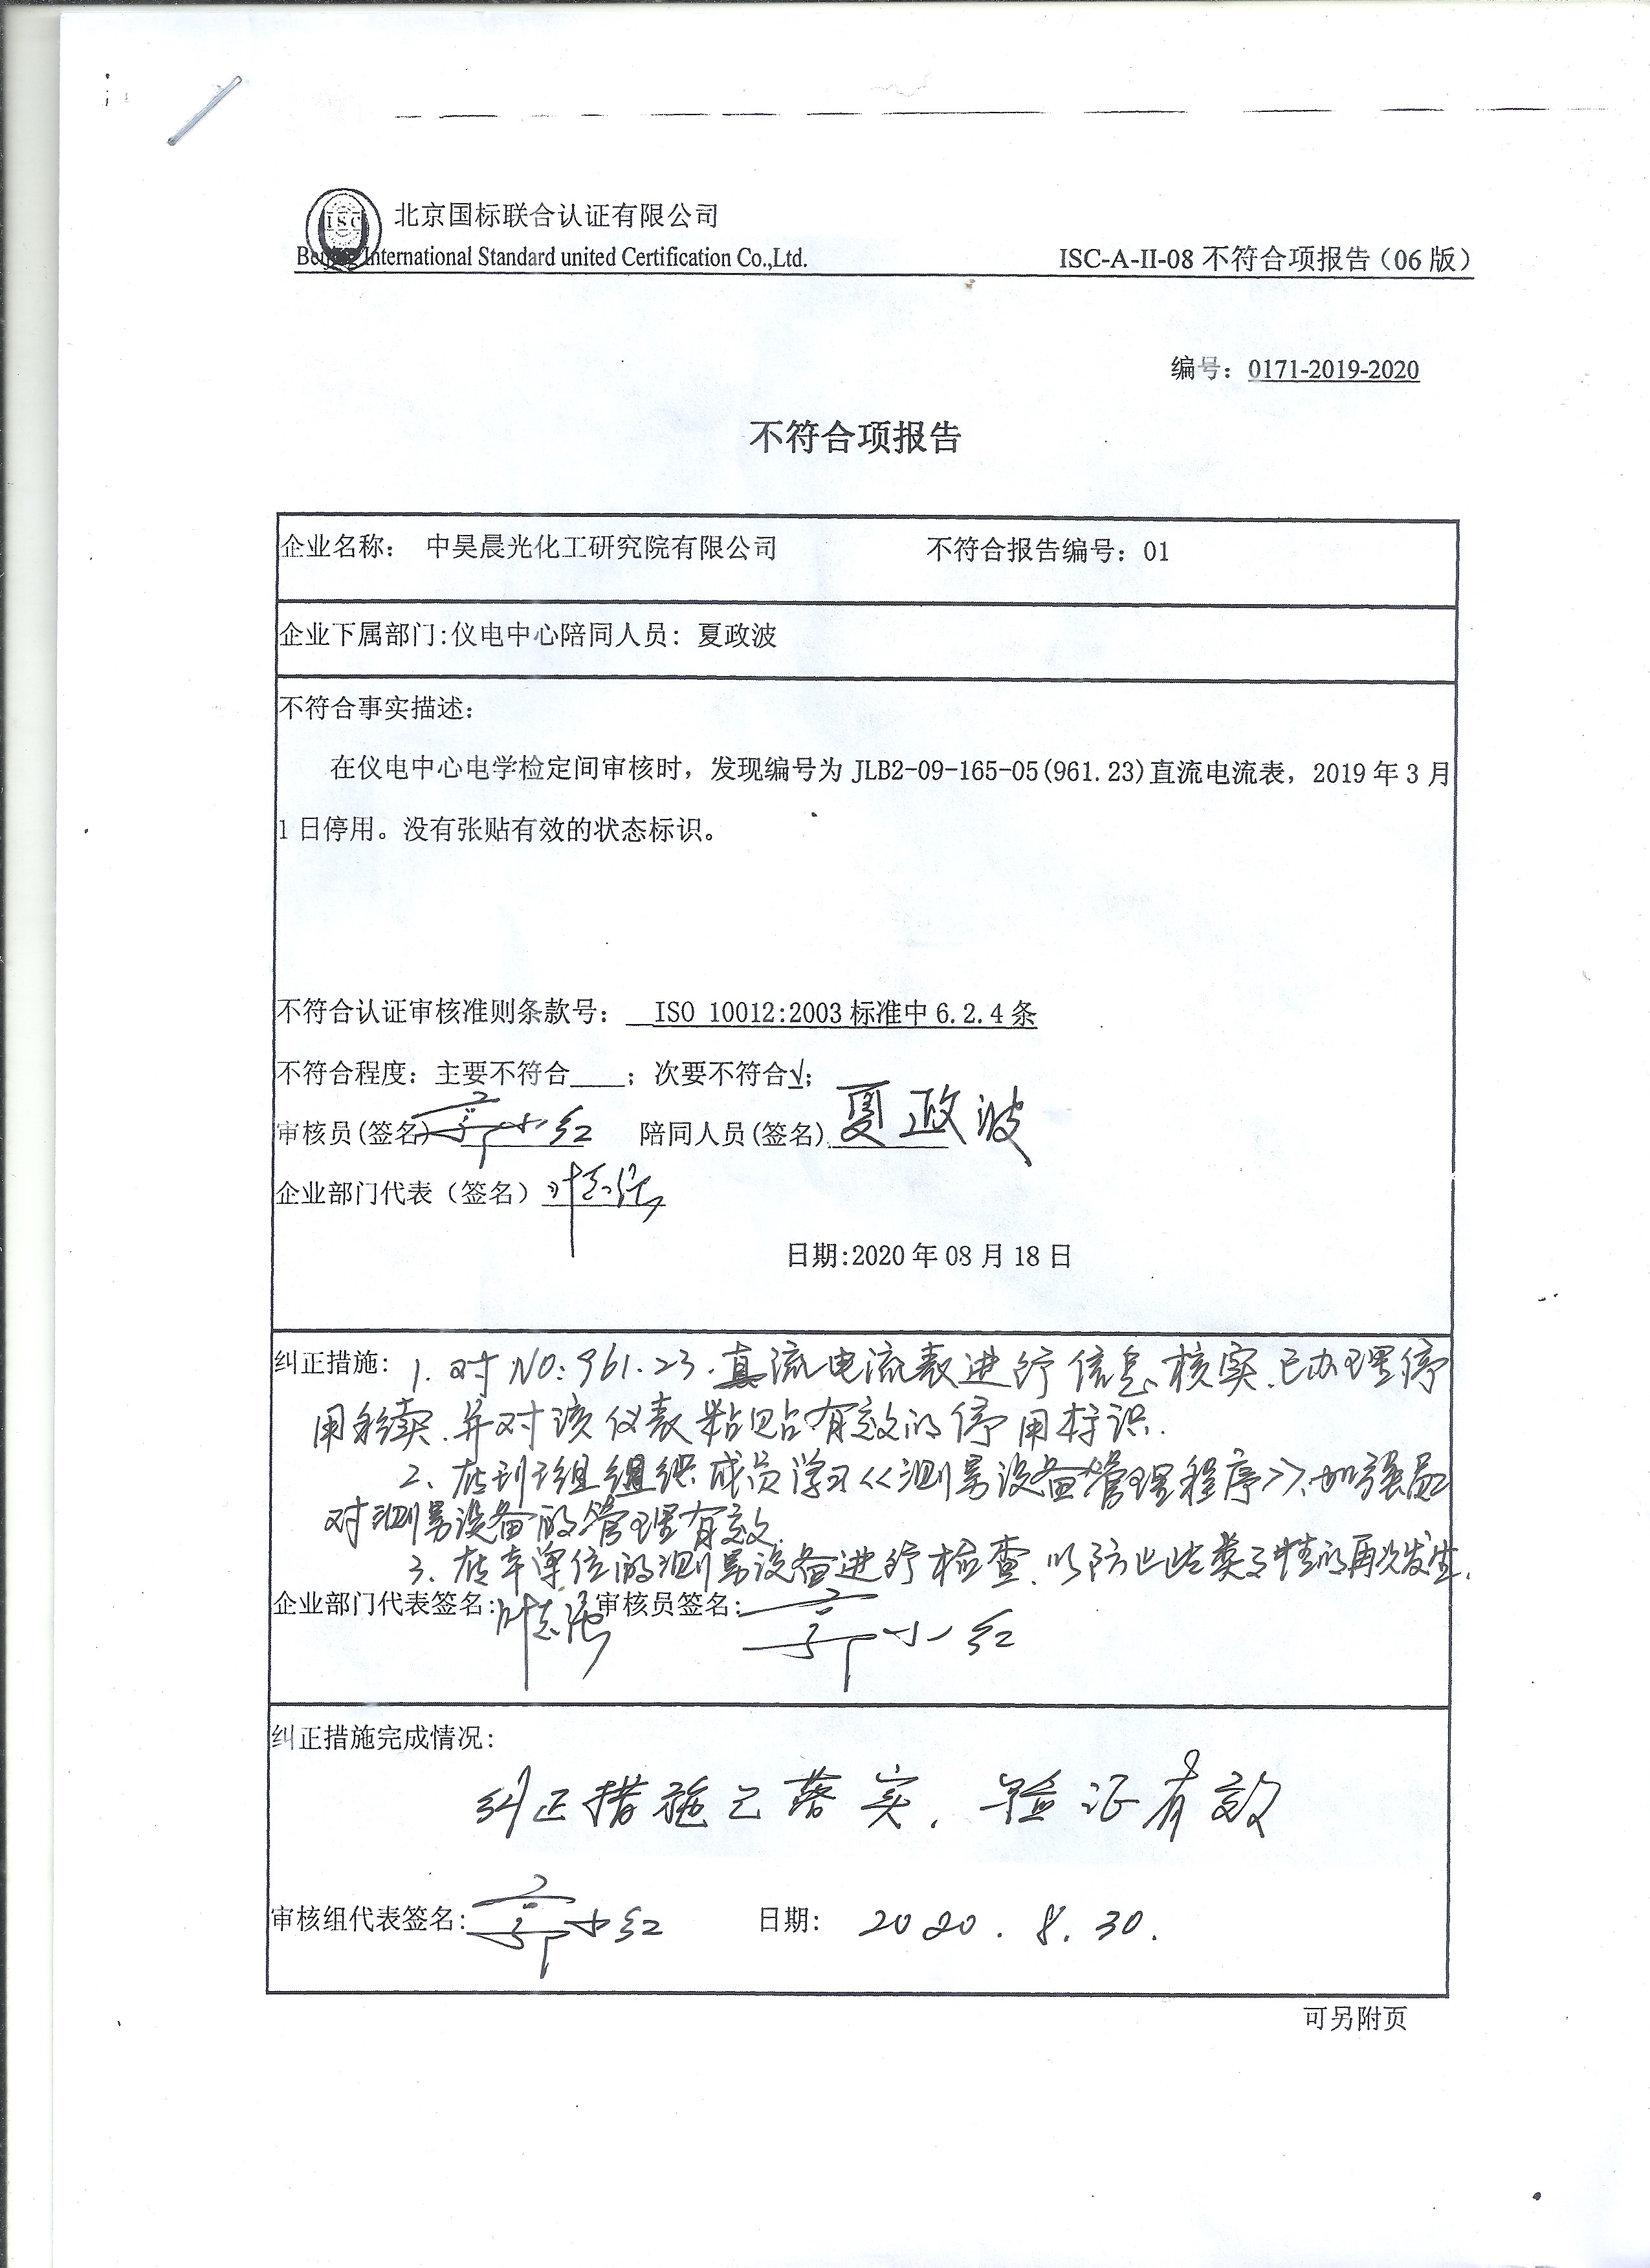 ISC
北京国标联合认证有限公司
Beijing International Standard united Certification Co.,Ltd.
ISC-A-II-08 不符合项报告（06 版）
编号：0171-2019-2020
不符合项报告
企业名称： 中昊晨光化工研究院有限公司 不符合报告编号：01
企业下属部门:仪电中心陪同人员：夏政波
不符合事实描述：
在仪电中心电学检定间审核时，发现编号为 JLB2-09-165-05(961.23)直流电流表，2019 年 3 月
1 日停用。没有张贴有效的状态标识。
不符合认证审核准则条款号： ISO 10012:2003 标准中 6.2.4 条
不符合程度：主要不符合____；次要不符合√;
审核员(签名) 小红 陪同人员(签名) 夏政波
企业部门代表（签名）叶志强
日期:2020 年 08 月 18 日
纠正措施：1. 对 NO:961.23.直流电流表进行信息核实.已办理停
用手续.并对该仪表粘贴有效的停用标识.
2、在 组组织成员学习《测量设备管理程序》、加强
对测量设备的管理有效.
3、在本单位的测量设备进行检查.以防止此类事情的再次发生.
企业部门代表签名:叶志强 审核员签名: 小红
纠正措施完成情况：
纠正措施已落实.验证有效
审核组代表签名: 小红 日期： 2020.8.30.
可另附页